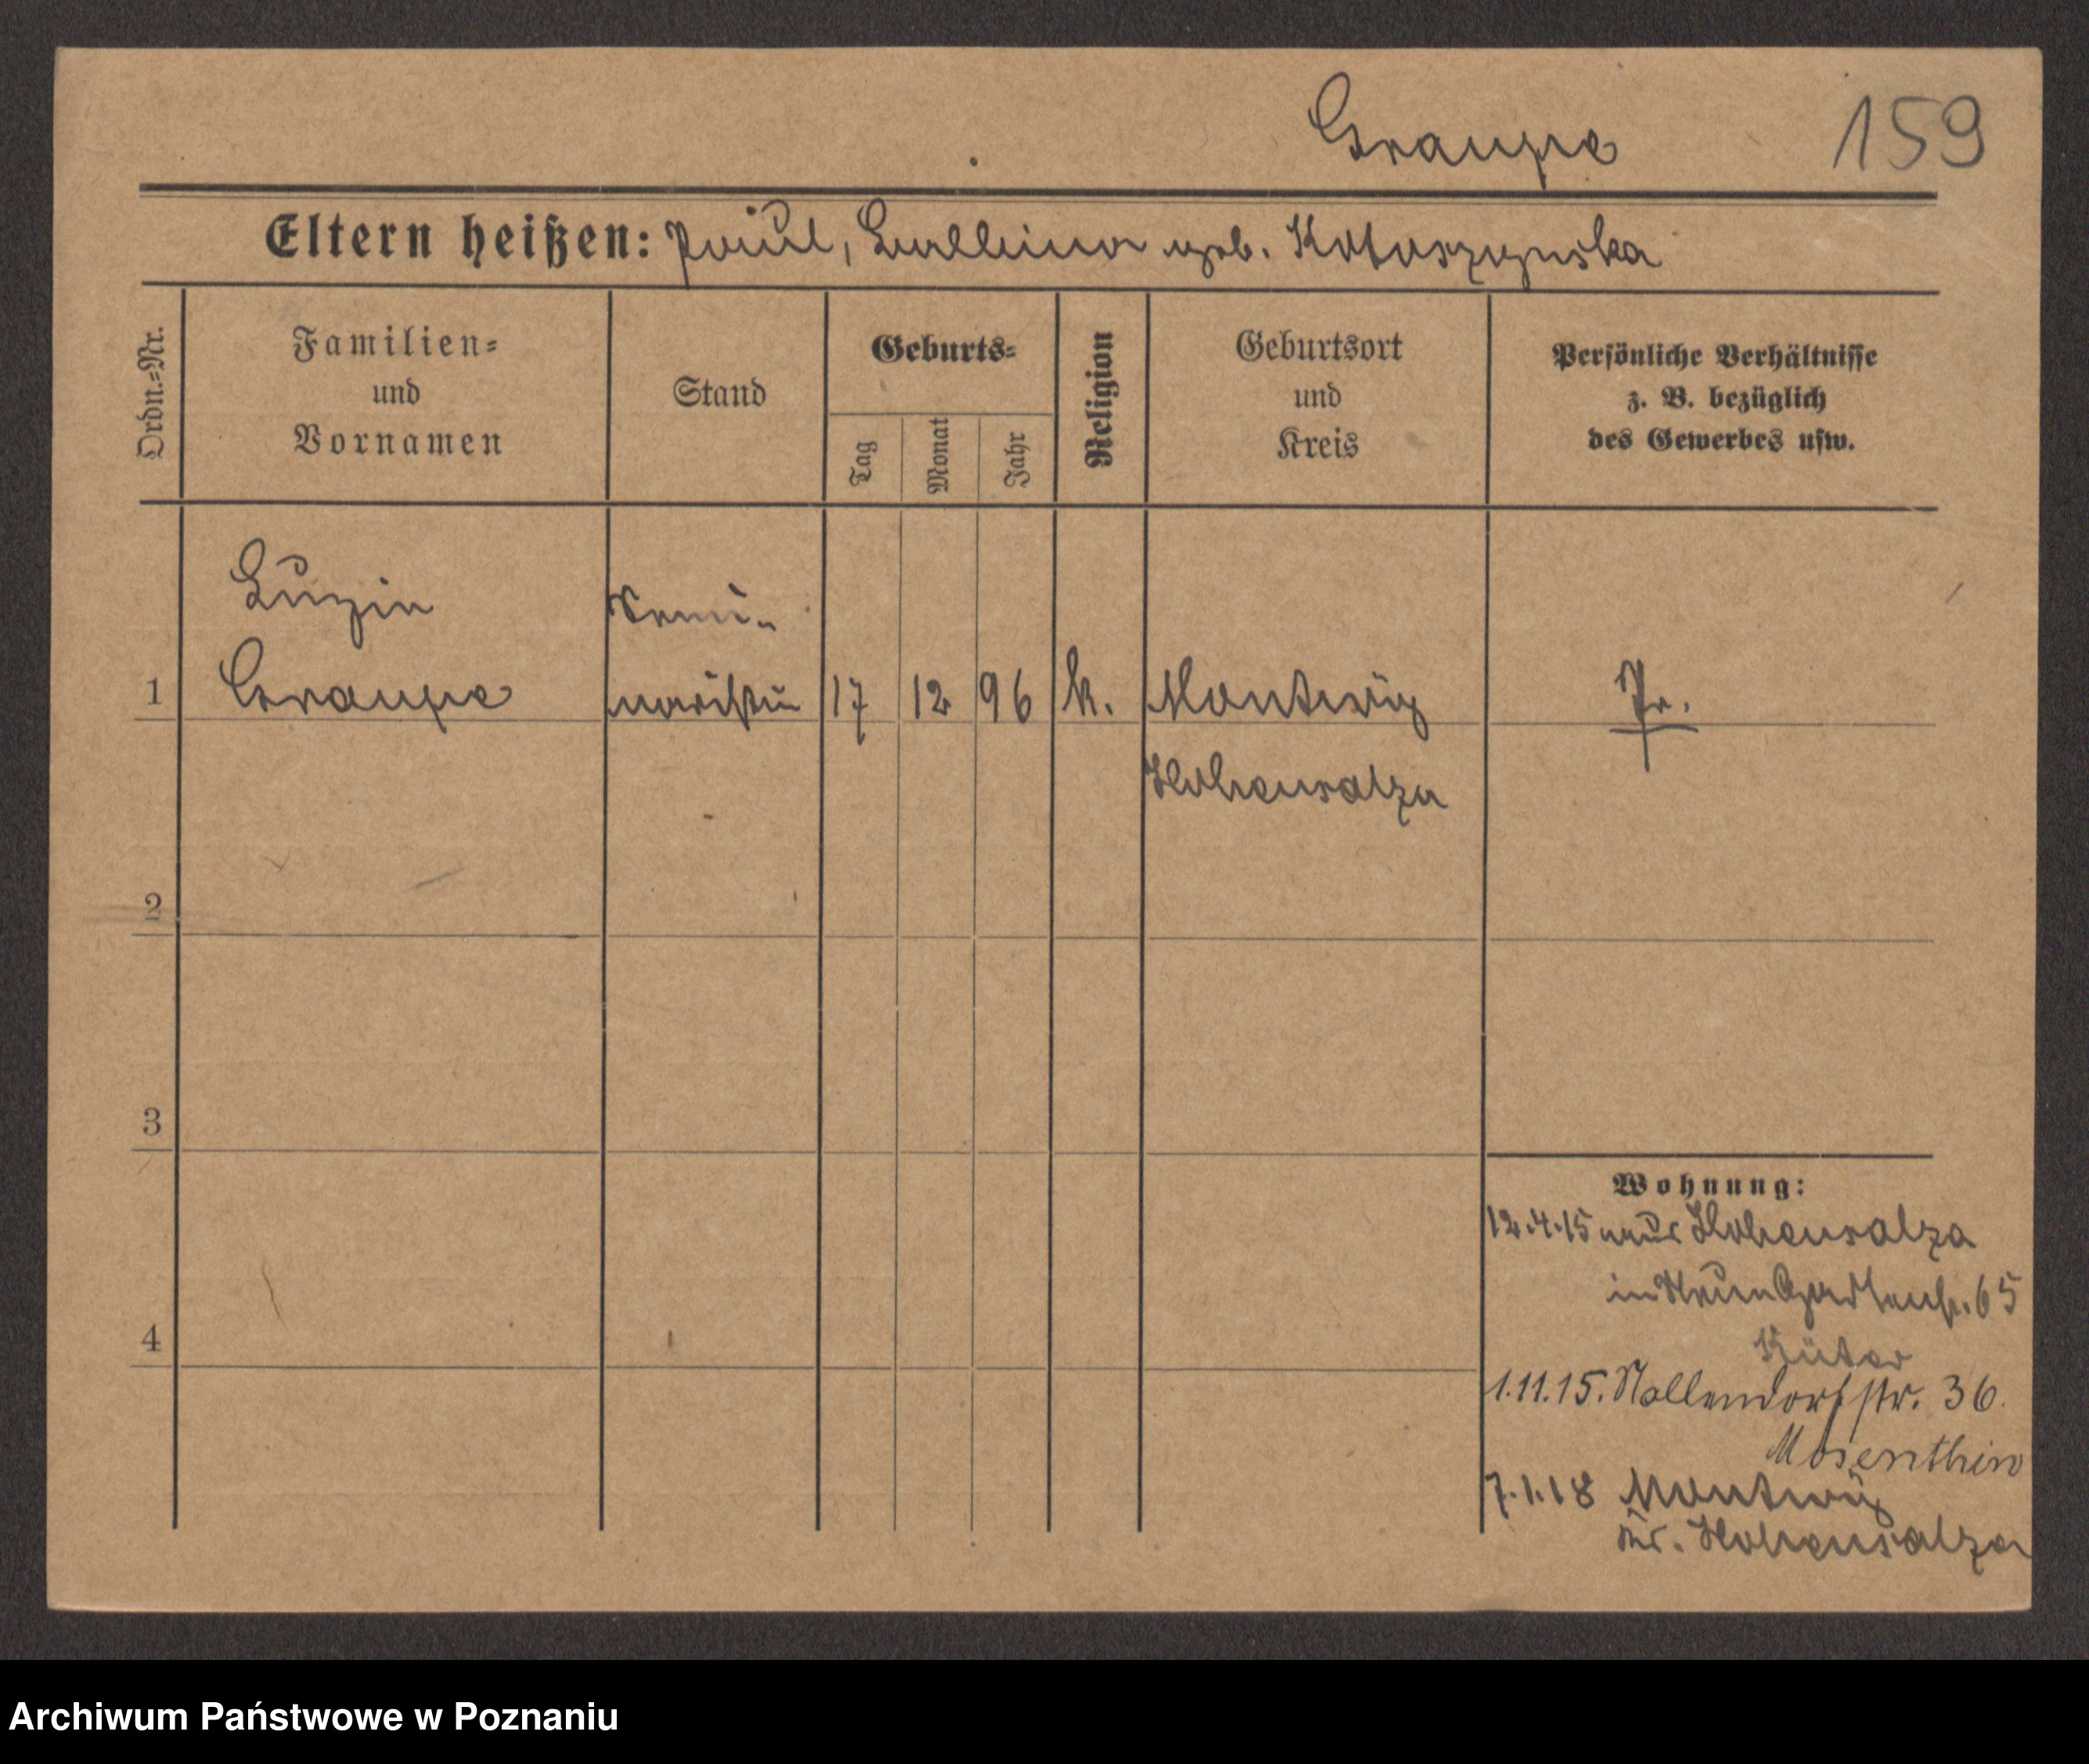 Graupe 159
Eltern heißen: Paul, Balbina geb. Kotoszynska
Ordn.=Nr.
Familien=
und
Vornamen
Stand
Geburts=
Tag
Monat
Jahr
Religion
Geburtsort
und
Kreis
Persönliche Verhältnisse
z. B. bezüglich
des Gewerbes usw.
Luzie Semi-
1 Graupe naristin 17 12 96 k. Montwy Pr.
Hohensalza
2
3
4
Wohnung:
12.4.15 aus Hohensalza
in Neue Gartenstr. 65
Küter
1.11.15. Nollendorfstr. 36.
Mosenthin
7.1.18 Montwy
Kr. Hohensalza
Archiwum Państwowe w Poznaniu